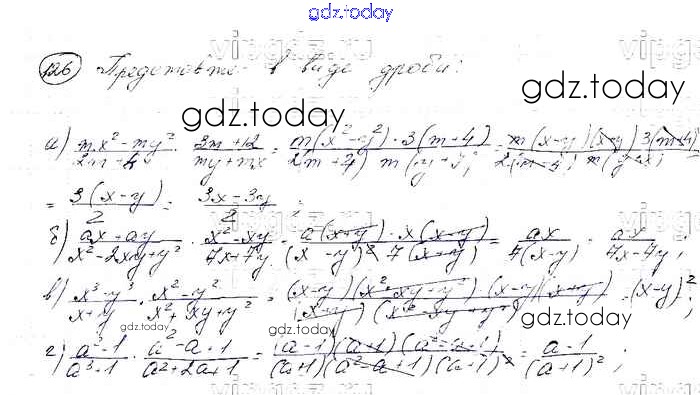 gdz.today
126 Представьте в виде дроби:
gdz.today
gdz.today
а) (mx² - my²)/(2m + 8) · (3m + 12)/(my + mx) = (m(x² - y²) · 3(m + 4))/(2(m + 4) m(y + x)) = (m(x - y)(x + y) 3(m + 4))/(2(m + 4) m(y + x))
= 3(x - y)/2 = (3x - 3y)/2;
б) (ax + ay)/(x² - 2xy + y²) · (x² - xy)/(7x + 7y) = (a(x + y) · x(x - y))/((x - y)² 7(x + y)) = ax/(7(x - y)) = ax/(7x - 7y);
в) (x³ - y³)/(x + y) · (x² - y²)/(x² + xy + y²) = ((x - y)(x² + xy + y²)(x - y)(x + y))/((x + y)(x² + xy + y²)) = (x - y)²;
gdz.today
gdz.today
г) (a² - 1)/(a³ + 1) · (a² - a + 1)/(a² + 2a + 1) = ((a - 1)(a + 1)(a² - a + 1))/((a + 1)(a² - a + 1)(a + 1)²) = (a - 1)/(a + 1)²;
gdz.today